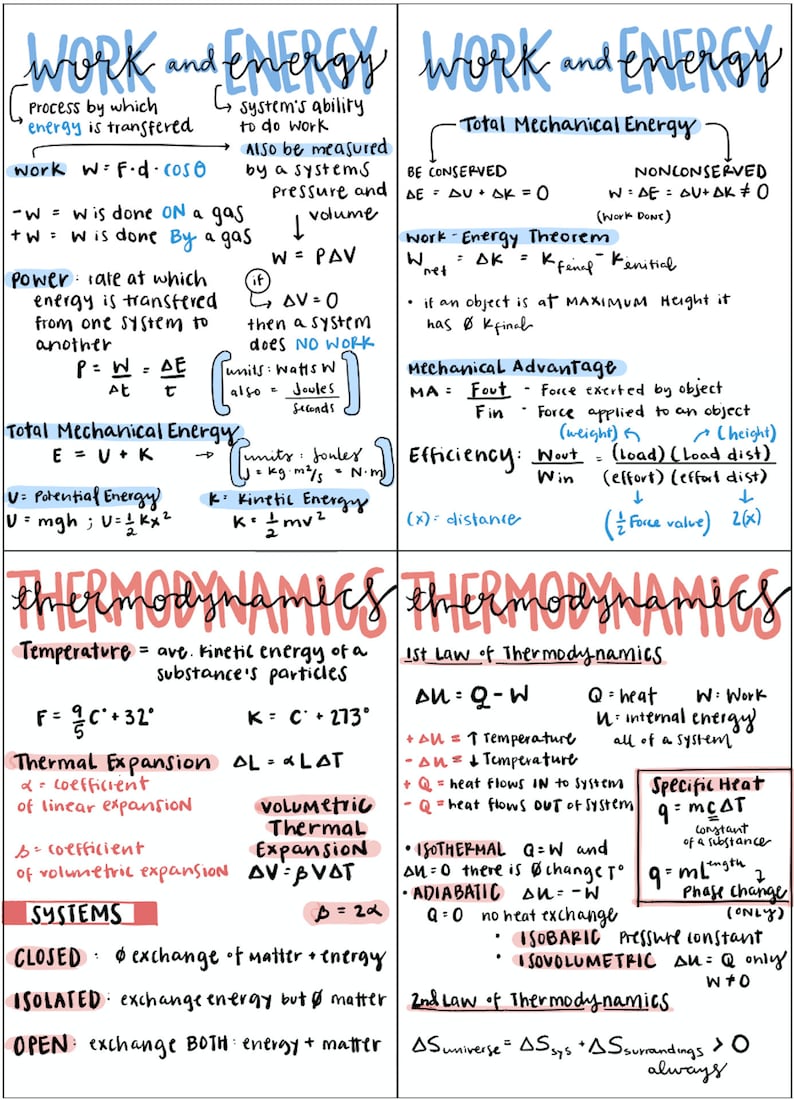 WORK and ENERGY
process by which
energy is transfered
system's ability
to do work
Also be measured
by a systems
pressure and
volume
W = PΔV
if
ΔV = 0
then a system
does NO WORK
work W = F·d·cosθ
-W = W is done ON a gas
+W = W is done By a gas
power: rate at which
energy is transfered
from one system to
another
P = W/Δt = ΔE/t
units: watts W
also = Joules/seconds
Total Mechanical Energy
E = U + K → units: Joules
J = kg·m²/s = N·m
U = Potential Energy
U = mgh ; U = 1/2 Kx²
K = Kinetic Energy
K = 1/2 mv²
WORK and ENERGY
Total Mechanical Energy
BE CONSERVED
ΔE = ΔU + ΔK = 0
NONCONSERVED
W = ΔE = ΔU + ΔK ≠ 0
(work Done)
Work-Energy Theorem
Wnet = ΔK = Kfinal - Kinitial
• if an object is at MAXIMUM Height it
has Ø Kfinal
Mechanical Advantage
MA = Fout - Force exerted by object
Fin - Force applied to an object
(weight) (height)
Efficiency: Wout/Win = (Load)(Load dist)/(effort)(effort dist)
(x) = distance (1/2 Force value) 2(x)
THERMODYNAMICS
Temperature = ave. kinetic energy of a
substance's particles
F = 9/5 C° + 32° K = C° + 273°
Thermal Expansion ΔL = αLΔT
α = coefficient
of linear expansion
β = coefficient
of volumetric expansion
volumetric
Thermal
Expansion
ΔV = βVΔT
SYSTEMS
β = 2α
CLOSED: Ø exchange of matter + energy
ISOLATED: exchange energy but Ø matter
OPEN: exchange BOTH: energy + matter
THERMODYNAMICS
1st Law of Thermodynamics
Δu = Q - W Q = heat W: Work
u: internal energy
all of a system
+ Δu = ↑ Temperature
- Δu = ↓ Temperature
+ Q = heat flows IN to system
- Q = heat flows OUT of system
Specific Heat
q = mcΔT
constant
of a substance
q = mLength
phase change
(ONLY)
• ISOTHERMAL Q = W and
Δu = 0 there is Ø change T°
• ADIABATIC Δu = -W
Q = 0 no heat exchange
• ISOBARIC pressure constant
• ISOVOLUMETRIC Δu = Q only
W ≠ 0
2nd Law of Thermodynamics
ΔSuniverse = ΔSsys + ΔSsurrandings > 0
always